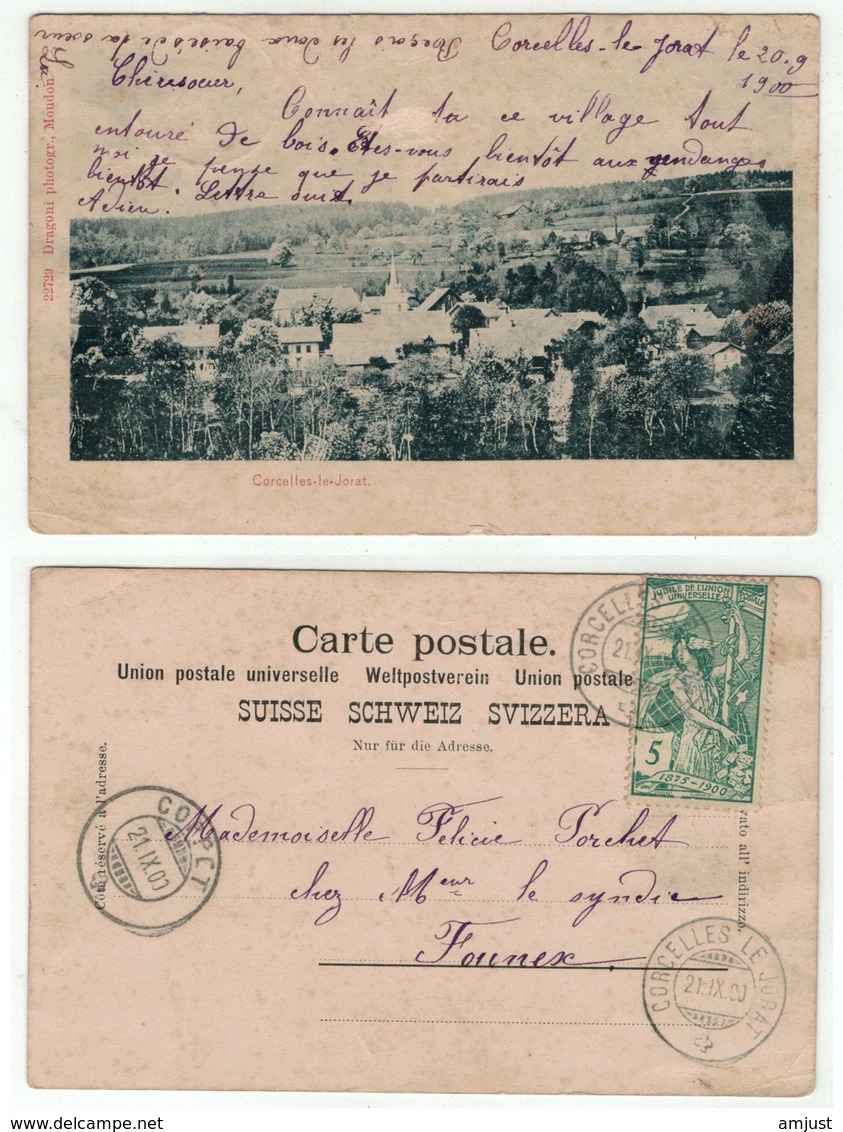 Reçois les doux baisés de ta soeur
Corcelles-le Jorat le 20.9
1900
Chère soeur,
Connaît tu ce village tout
entouré de bois. Etes-vous bientôt aux vendanges
moi je pense que je partirais
bientôt. Lettre suit.
Adieu.
22729 Dragoni photogr., Moudon
Corcelles-le-Jorat.
Carte postale.
Union postale universelle Weltpostverein Union postale
SUISSE SCHWEIZ SVIZZERA
Nur für die Adresse.
Côté réservé à l'adresse.
vato all' indirizzo.
JUBILÉ DE L'UNION
POSTALE
UNIVERSELLE
5
1875-1900
CORCELLES
21.IX
COPPET
21.IX.00
Mademoiselle Félicie Porchet
chez Meur le syndic
Founex.
CORCELLES LE JORAT
21.IX.00
amjust